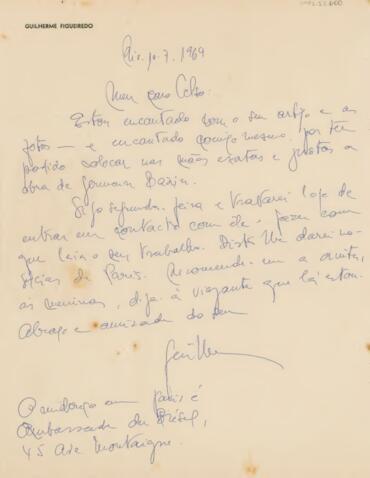 GUILHERME FIGUEIREDO
Rio, 10.7.1969
Meu caro Celso:
Estou encantado com o seu artigo e as
fotos — e encantado comigo mesmo, por ter
podido colocar nas mãos exatas e justas a
obra de Germain Bazin.
Sigo segunda-feira e tratarei logo de
entrar em contacto com êle, fazer com
que leia o seu trabalho. Disto lhe darei no-
tícias de Paris. Recomende-me a
as meninas, diga à viajante que lá estou.
Abraço e amizade do seu
Guilherme
O endereço em Paris é
Ambassade du Brésil,
45 Ave Montaigne.